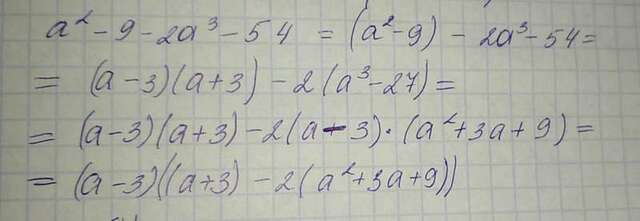 a² - 9 - 2a³ - 54 = (a² - 9) - 2a³ - 54 =
= (a - 3)(a + 3) - 2(a³ - 27) =
= (a - 3)(a + 3) - 2(a - 3) · (a² + 3a + 9) =
= (a - 3)((a + 3) - 2(a² + 3a + 9))